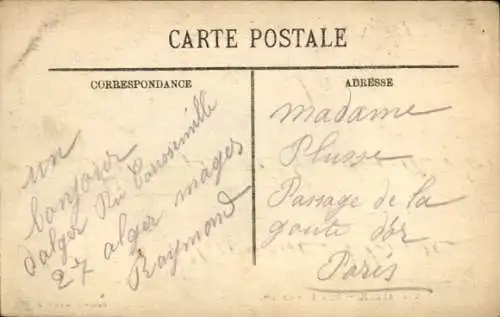 CARTE POSTALE
CORRESPONDANCE
un
bonjour
d'alger Rue
27 alger
Raymond
ADRESSE
Madame
Plusse
Passage de la
goute d'or
Paris